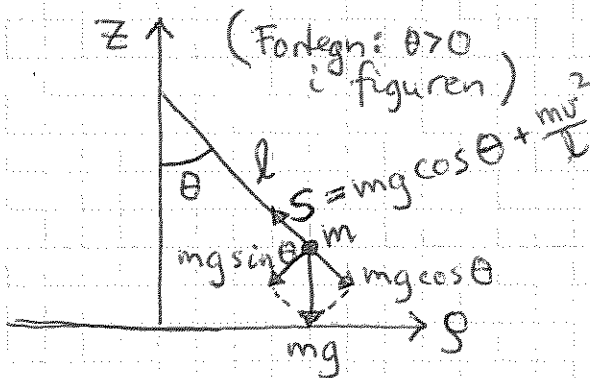 Z
(Fortegn: θ>0
i figuren)
θ
l
S = mg cos θ + mv²/l
m
mg sin θ
mg cos θ
mg
ρ